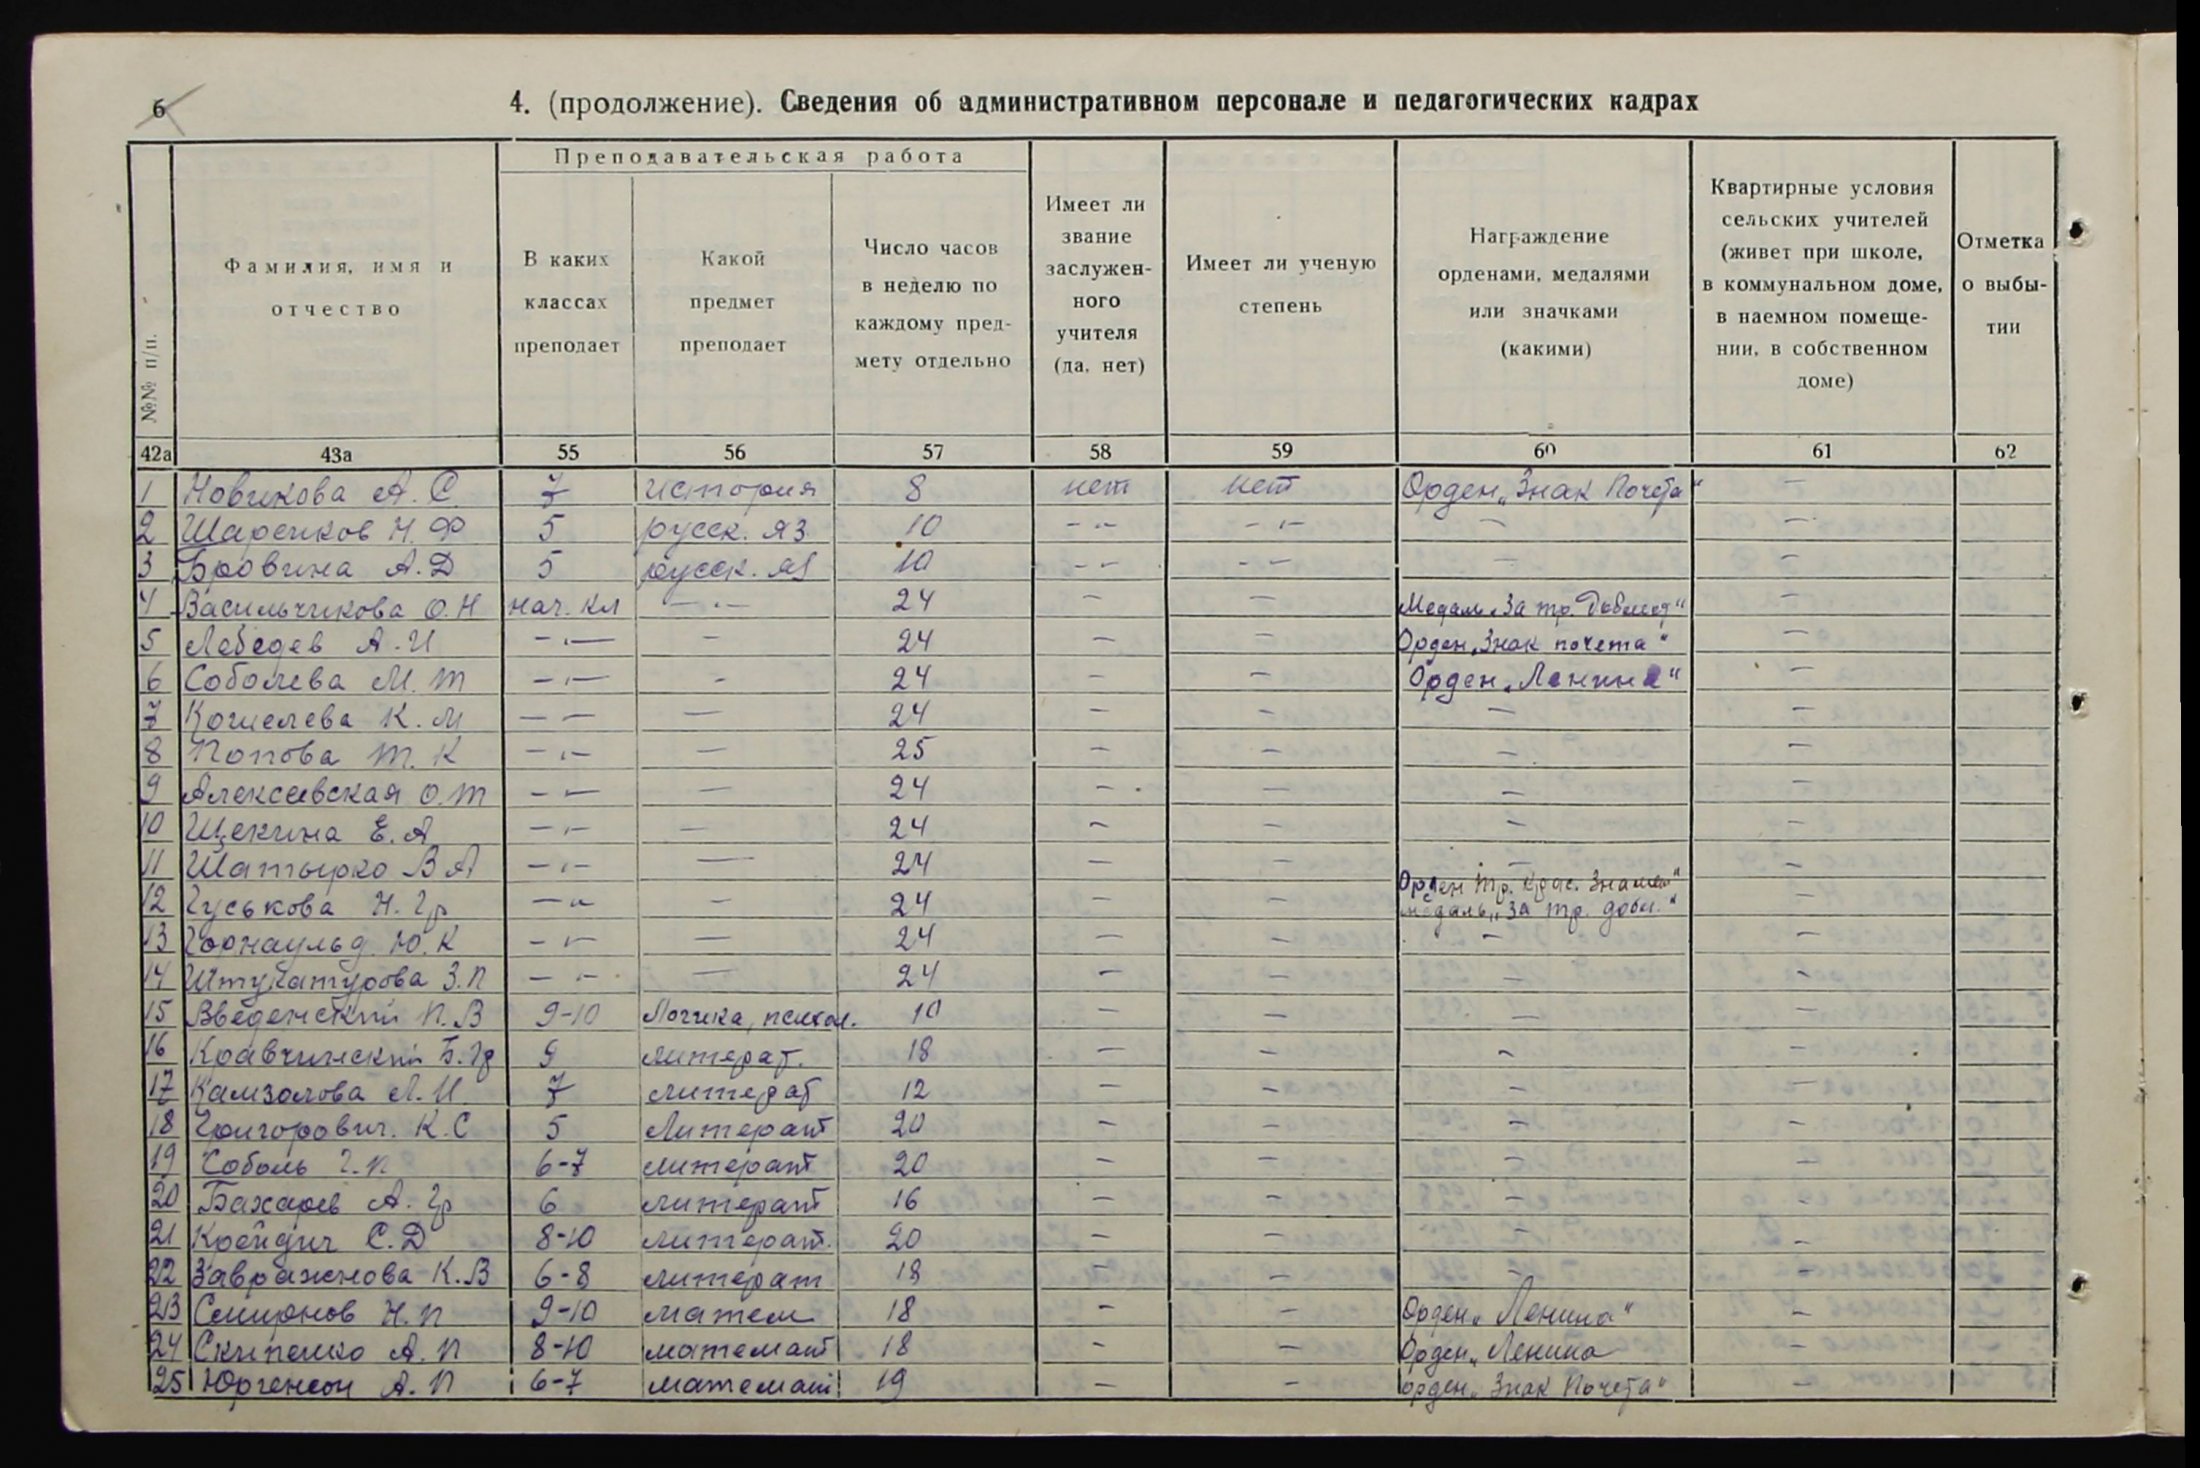 6
4. (продолжение). Сведения об административном персонале и педагогических кадрах
№№ п/п.
Фамилия, имя и отчество
Преподавательская работа
В каких классах преподает
Какой предмет преподает
Число часов в неделю по каждому предмету отдельно
Имеет ли звание заслуженного учителя (да, нет)
Имеет ли ученую степень
Награждение орденами, медалями или значками (какими)
Квартирные условия сельских учителей (живет при школе, в коммунальном доме, в наемном помещении, в собственном доме)
Отметка о выбытии
42а 43а 55 56 57 58 59 60 61 62
1 Новикова А. С. 7 история 8 нет нет Орден „Знак Почета" —
2 Шариков Н. Ф 5 русск. яз. 10 -"- -"- — —
3 Бровина А. Д 5 русск. яз 10 -"- -"- — —
4 Васильчикова О. Н нач. кл —"— 24 — — Медаль „За тр. Доблест" —
5 Лебедев А. И —"— — 24 — — Орден „Знак почета" —
6 Соболева М. Т —"— - 24 — — Орден „Ленина" —
7 Кошелева К. М — — — 24 — — — —
8 Попова Т. К —"— — 25 — — — —
9 Алексеевская О. Т —"— — 24 — — — —
10 Щекина Е. А —"— — 24 — — — —
11 Шатырко В А —"— — 24 — — — —
12 Гуськова Н. Гр —"— — 24 — — Орден Тр. Крас. Знамен" —
медаль „За тр. добл."
13 Горнаульд. Ю. К —"— — 24 — — — —
14 Штукатурова З. П —"— — 24 — — — —
15 Введенский П. В 9-10 Логика, психол. 10 — — — —
16 Кравчинский Б. Гр 9 литерат. 18 — — — —
17 Камзолова Л. И. 7 литерат 12 — — — —
18 Григорович. К. С 5 Литерат 20 — — — —
19 Соболь Г. П 6-7 литерат 20 — — — —
20 Бахарев А. Гр 6 литерат 16 — — — —
21 Крейдич С. Д 8-10 литерат. 20 — — — —
22 Завражнова К. В 6-8 литерат 18 — — — —
23 Смирнов Н. П 9-10 матем 18 — — Орден „Ленина" —
24 Скипенко А. П 8-10 математ 18 — — Орден „Ленина —
25 Юргенсон А. П 6-7 математ 19 — — орден „Знак Почета" —